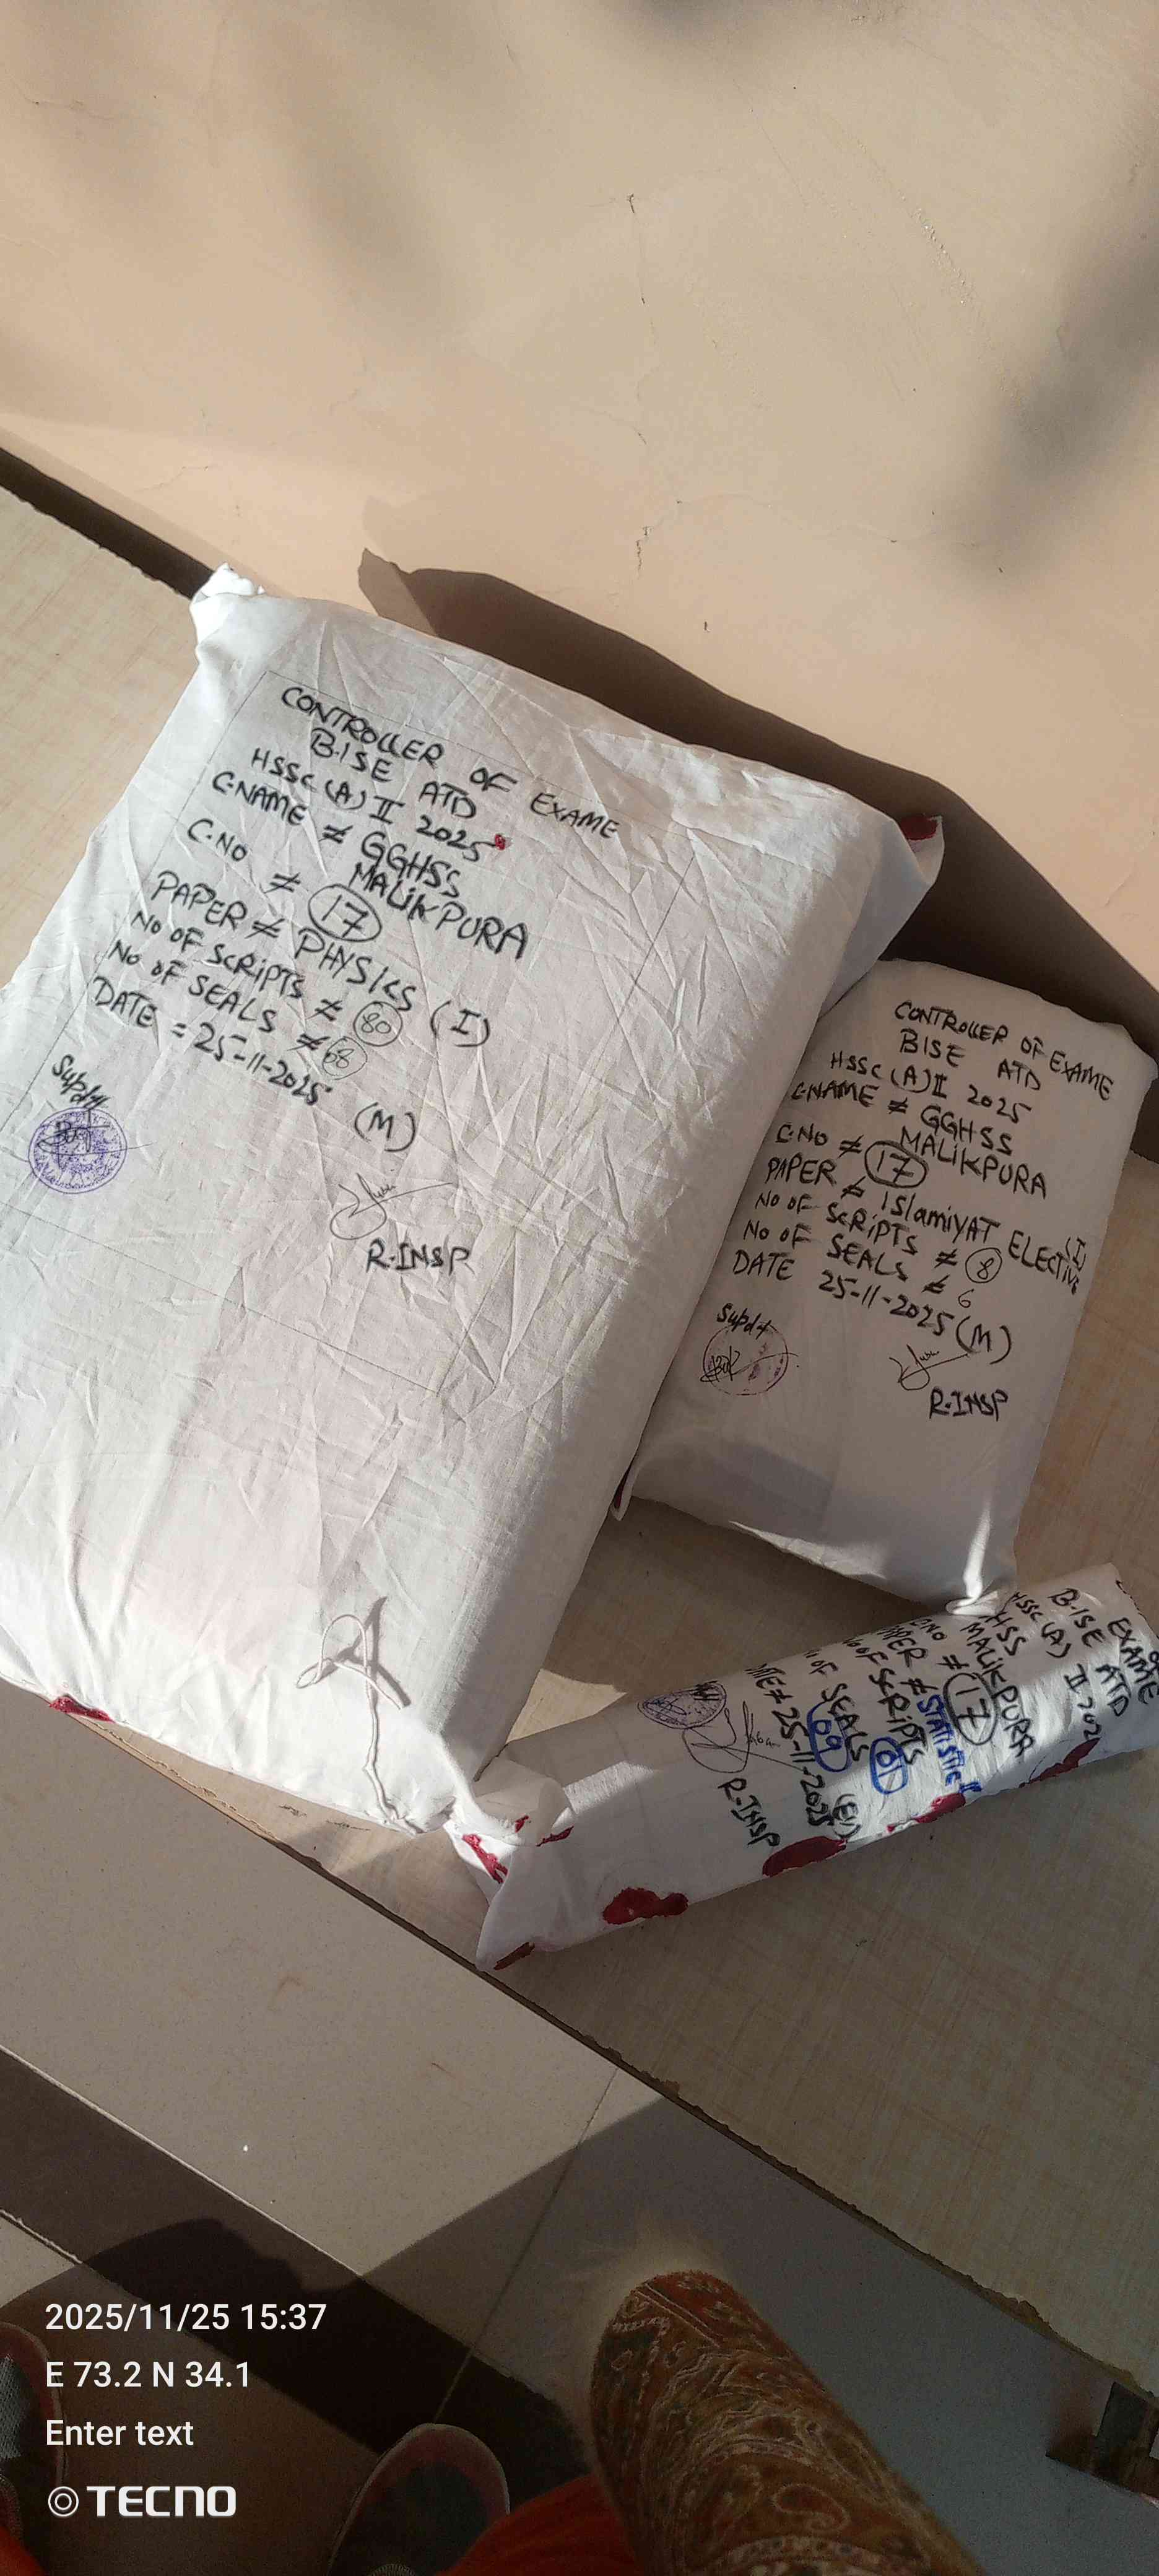 CONTROLLER OF EXAME
B.ISE ATD
HSSC (A) II 2025
C.NAME ≠ GGHSS
MALIKPURA
C.NO ≠ 17
PAPER ≠ PHYSICS (I)
NO OF SCRIPTS ≠ 80
NO OF SEALS ≠ 68
DATE = 25-11-2025 (M)
Supdt
R.INSP
CONTROLLER OF EXAME
BISE ATD
HSSC (A) II 2025
C.NAME ≠ GGHSS
MALIKPURA
C.NO ≠ 17
PAPER ≠ ISlamiYAT ELECTIVE (I)
NO OF SCRIPTS ≠ 8
NO OF SEALS ≠ 6
DATE 25-11-2025 (M)
Supdt
R.INSP
EXAME
B.ISE ATD
HSSC (A) II 202
HSS
MALIKPURA
NO ≠ 17
PER ≠ STATISTIC
OF SCRIPTS 01
OF SEALS 09
ATE ≠ 25-11-2025 (E)
R.INSP
2025/11/25 15:37
E 73.2 N 34.1
Enter text
TECNO